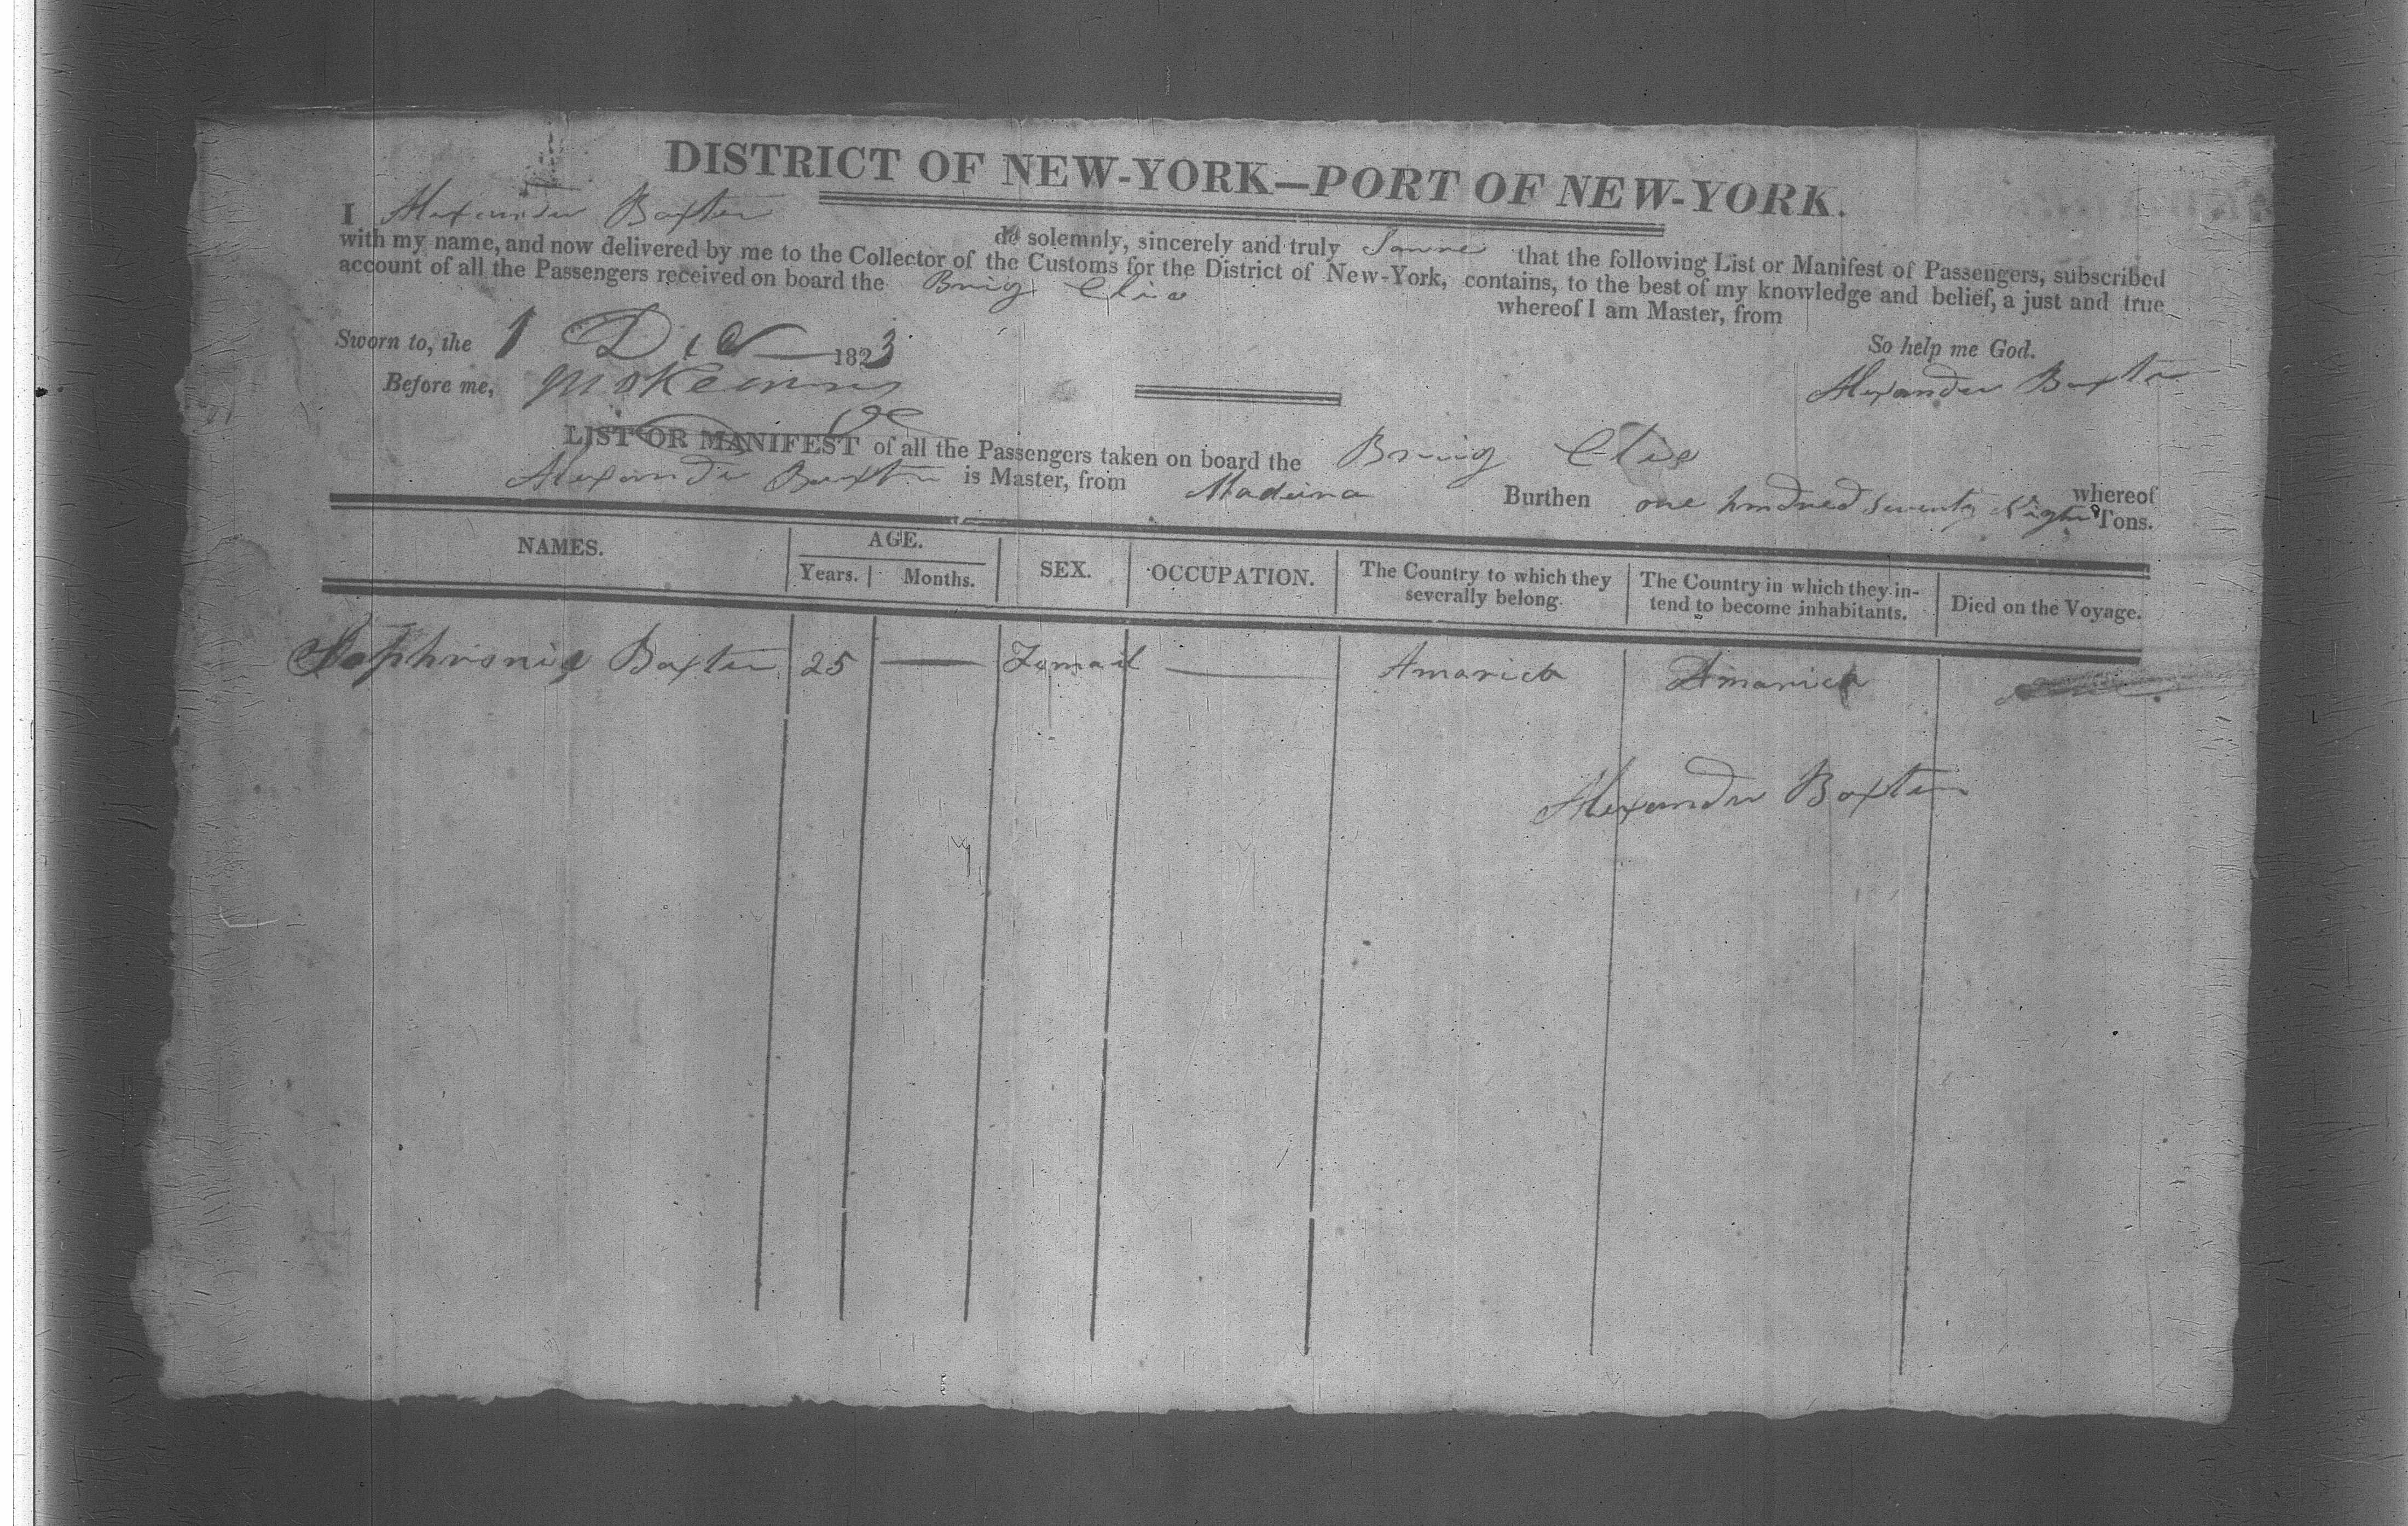 DISTRICT OF NEW-YORK—PORT OF NEW-YORK.
I Alexander Baxter do solemnly, sincerely and truly that the following List or Manifest of Passengers, subscribed
with my name, and now delivered by me to the Collector of the Customs for the District of New-York, contains, to the best of my knowledge and belief, a just and true
account of all the Passengers received on board the Brig Clio whereof I am Master, from
Sworn to, the 1 Dec 1823 So help me God.
Before me, Alexander Baxter
LIST OR MANIFEST of all the Passengers taken on board the Brig Clio whereof
Alexander Baxter is Master, from Madeira Burthen one hundred seventy Eight Tons.
NAMES. AGE. Years. Months. SEX. OCCUPATION. The Country to which they severally belong. The Country in which they intend to become inhabitants. Died on the Voyage.
Sophronia Baxter 25 — Femail — Amarica Amarica
Alexander Baxter